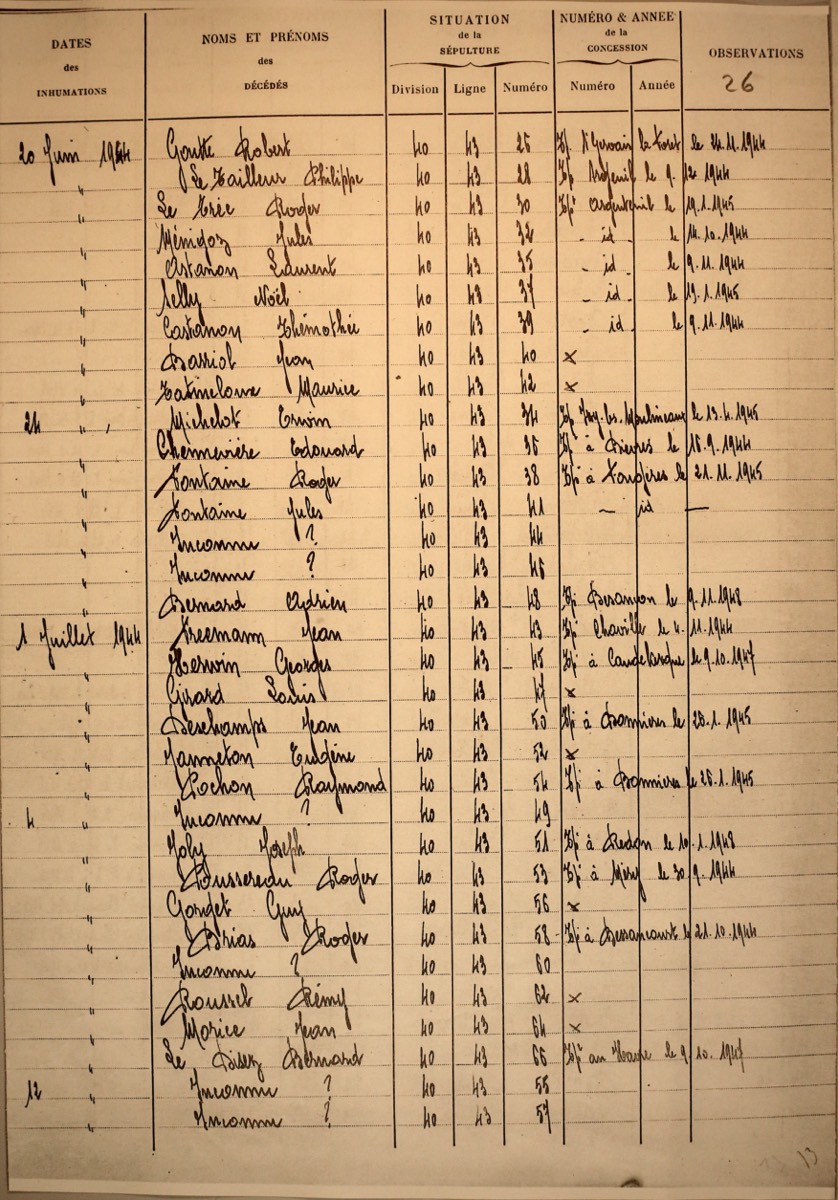 DATES des INHUMATIONS
NOMS ET PRÉNOMS des DÉCÉDÉS
SITUATION de la SÉPULTURE
Division Ligne Numéro
NUMÉRO & ANNEE de la CONCESSION
Numéro Année
OBSERVATIONS
26
20 Juin 1944 Goutte Robert 40 43 26 Tpé St Gervais la Foret le 24.11.1944
" Le Tailleur Philippe 40 43 28 Tpé le 9.12.1944
" Le Trée Roger 40 43 30 Tpé Argenteuil le 19.1.1945
" Ménigoz Jules 40 43 32 - id - le 14.10.1944
" Astanon Laurent 40 43 35 - id - le 9.11.1944
" Selly Noël 40 43 37 - id - le 13.1.1945
" Castanon Thémothée 40 43 39 - id - le 9.11.1944
" Dassiol Jean 40 43 40 x
" Maurice 40 43 42 x
24 " Michelot Erwin 40 43 34 Tpé Issy-les-Moulineaux le 13.4.1945
" Chennevière Edouard 40 43 36 Tpé à Bièvres le 16.9.1944
" Fontaine Roger 40 43 38 Tpé à Fougères le 21.11.1945
" Fontaine Jules 40 43 41 - id -
" Inconnu ? 40 43 44
" Inconnu ? 40 43 46
" Bernard Adrien 40 43 48 Tpé Besançon le 9.11.1948
1 Juillet 1944 Freemann Jean 40 43 43 Tpé Chaville le 4.11.1944
" Herwin Georges 40 43 45 Tpé à le 9.10.1947
" Girard Louis 40 43 47 x
" Deschamps Jean 40 43 50 Tpé à Bonnières le 26.1.1945
" Janneton Eugène 40 43 52 x
" Rochon Raymond 40 43 54 Tpé à Bonnières le 26.1.1945
4 " Inconnu ? 40 43 49
" Joly Joseph 40 43 51 Tpé à Redon le 10.1.1948
" Roussereau Roger 40 43 53 Tpé à Méry le 30.9.1944
" Gorget Guy 40 43 56 x
" Brias Roger 40 43 58 Tpé à Bessancourt le 21.10.1944
" Inconnu ? 40 43 60
" Roussel Rémy 40 43 62 x
" Morice Jean 40 43 64 x
" Le Bernard 40 43 66 Tpé au Havre le 9.10.1947
12 " Inconnu ? 40 43 55
" Inconnu ? 40 43 57
13